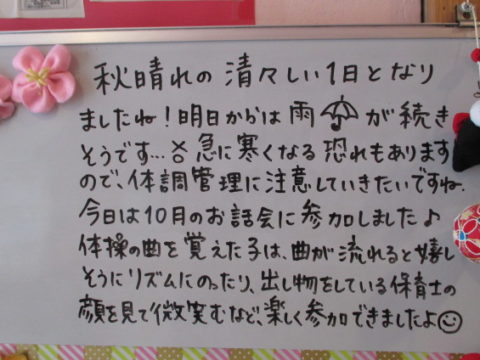 秋晴れの清々しい1日となり
ましたね!明日からは雨☂が続き
そうです…急に寒くなる恐れもあります
ので、体調管理に注意していきたいですね.
今日は10月のお話会に参加しました♪
体操の曲を覚えた子は、曲が流れると嬉し
そうにリズムにのったり、出し物をしている保育士の
顔を見て微笑むなど、楽しく参加できましたよ☺